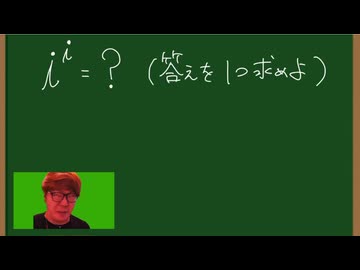 i^i = ? (答えを1つ求めよ)